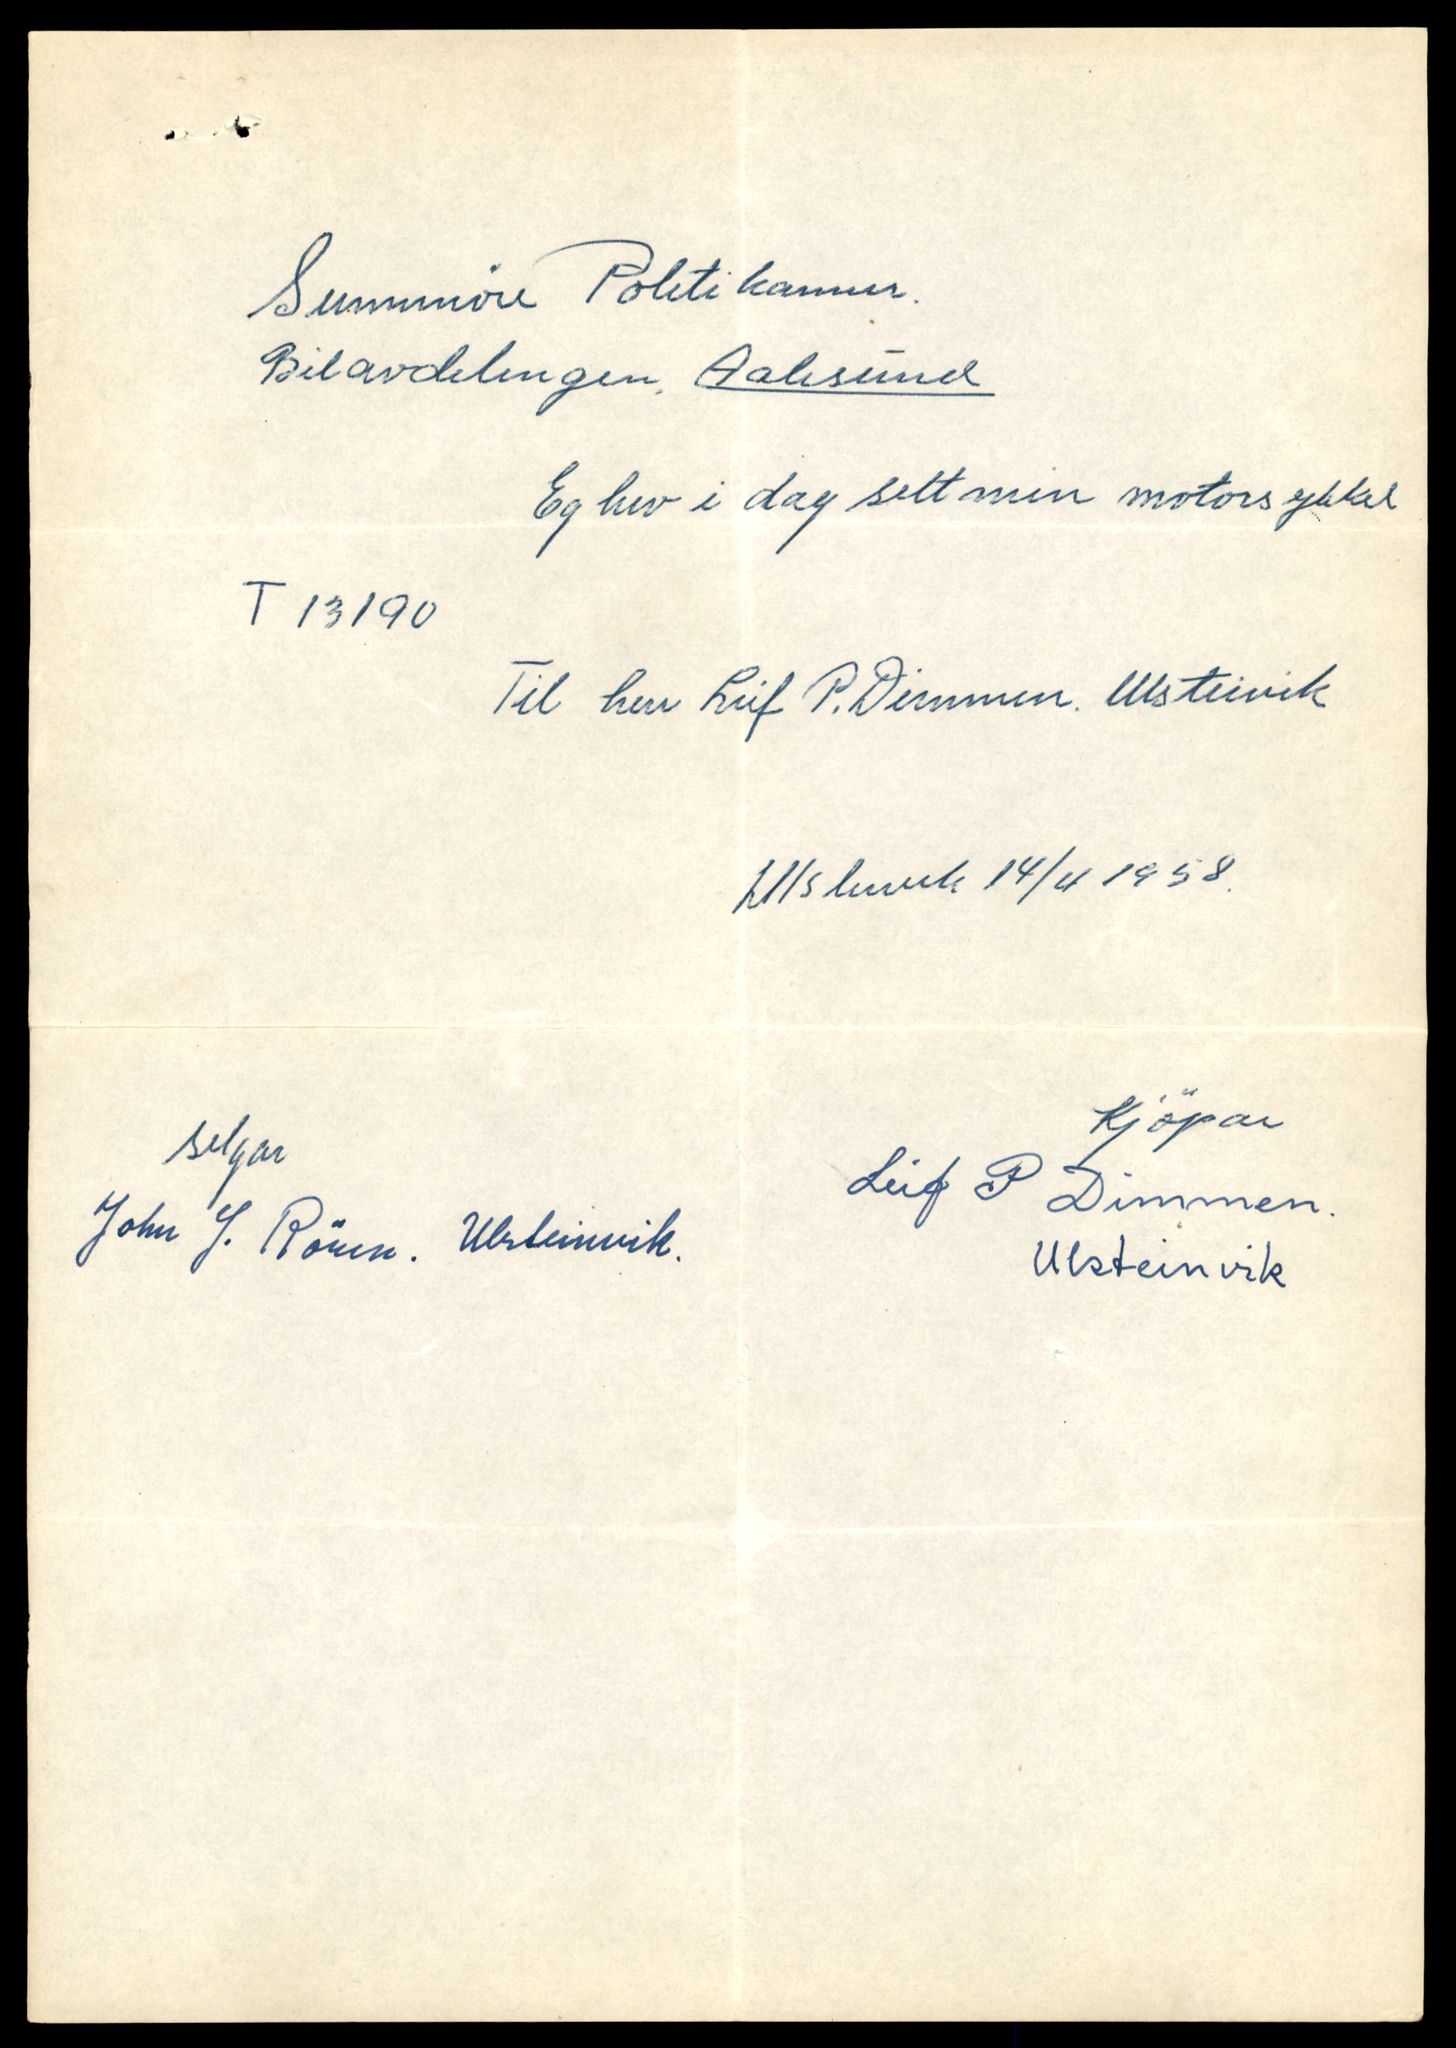 Sunnmöre Politikammer.
Bilavdelingen, Aalesund
Eg hev i dag selt min motorsykkel
T 13190
Til herr Leif P. Dimmen. Ulsteinvik
Ulsteinvik 14/4 1958.
Kjöpar
selgar
Leif P Dimmen.
John J. Rönen. Ulsteinvik.
Ulsteinvik